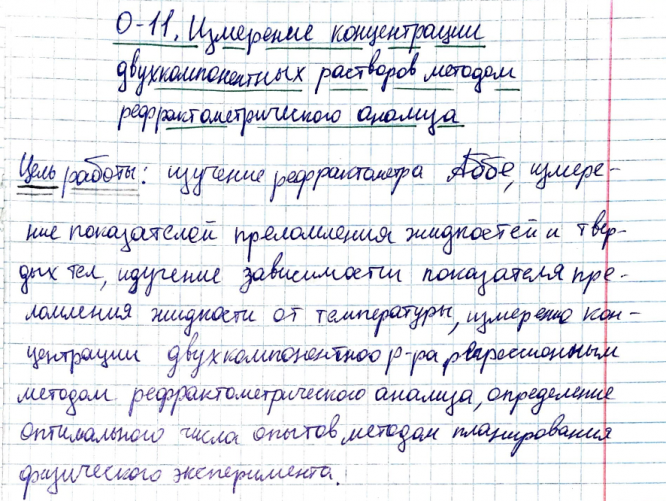 О-11. Измерение концентрации
двухкомпонентных растворов методом
рефрактометрического анализа
Цель работы: изучение рефрактометра Аббе, измере-
ние показателей преломления жидкостей и твер-
дых тел, изучение зависимости показателя пре-
ломления жидкости от температуры, измерение кон-
центрации двухкомпонентного р-ра регрессионным
методом рефрактометрического анализа, определение
оптимального числа опытов методом планирования
физического эксперимента.